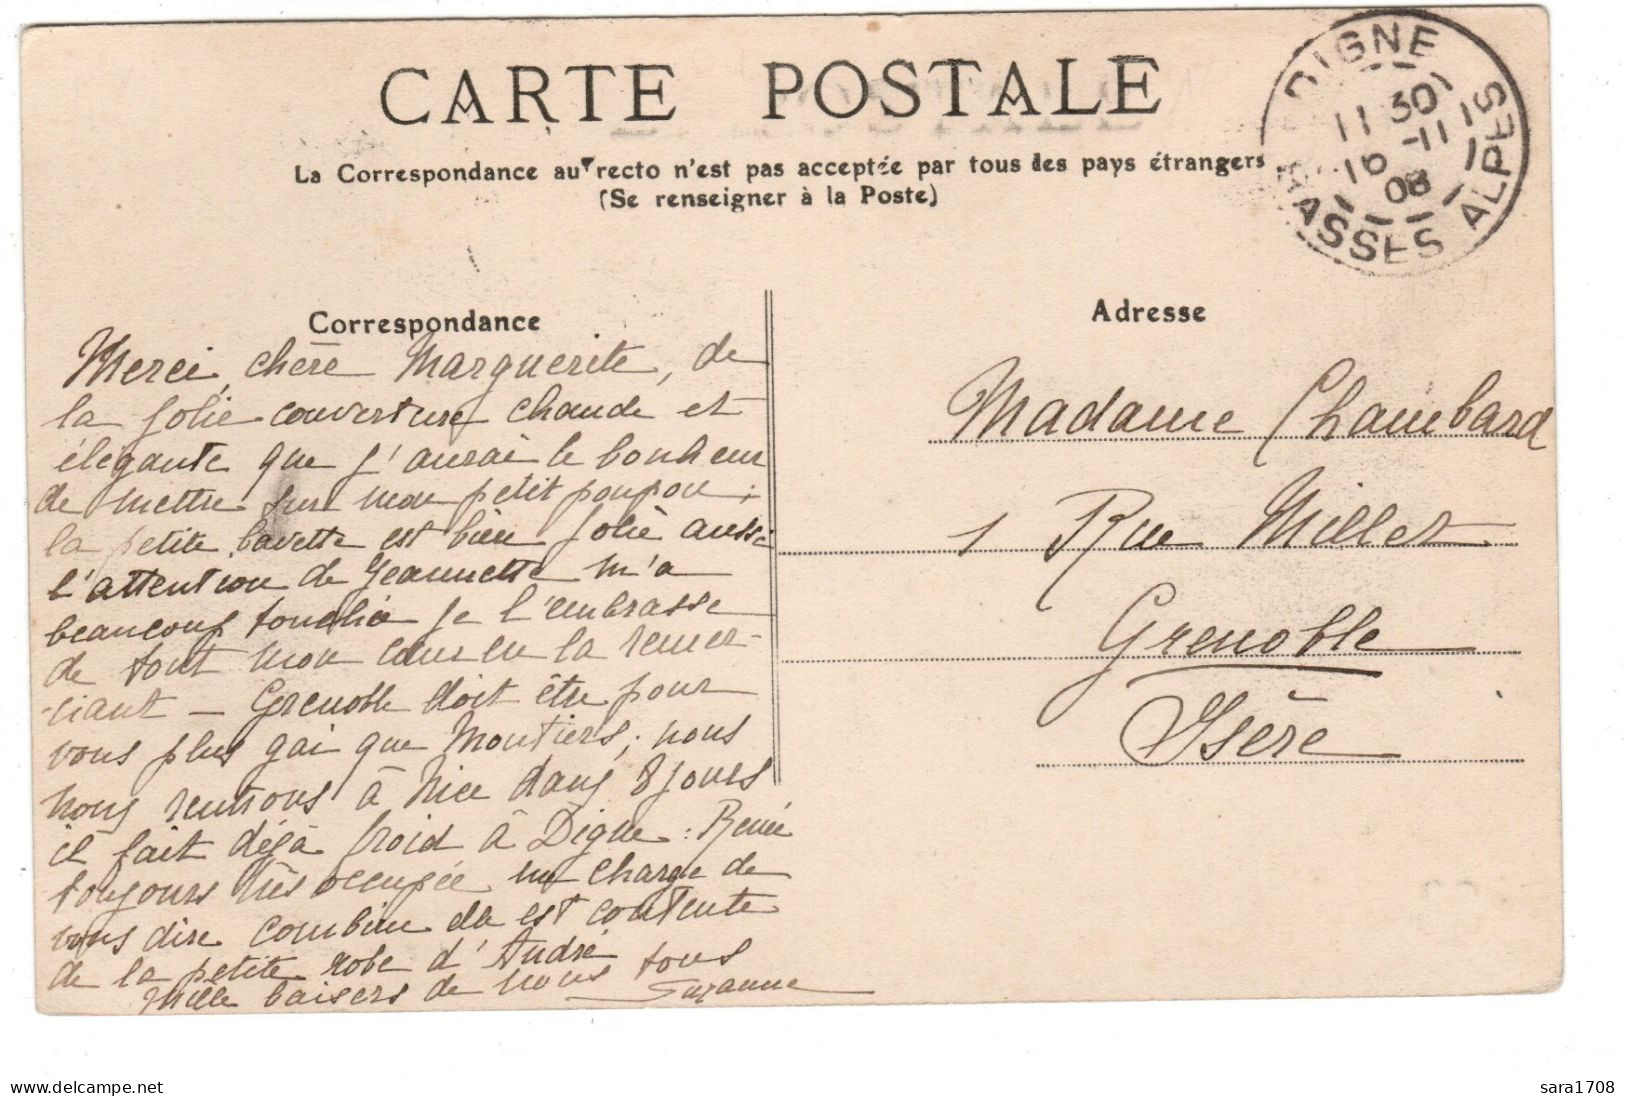 CARTE POSTALE
La Correspondance au recto n'est pas acceptée par tous les pays étrangers
(Se renseigner à la Poste)
DIGNE
11 30
16 -11
08
BASSES ALPES
Correspondance
Merci, chère Marguerite, de
la jolie couverture chaude et
élégante que j'aurai le bonheur
de mettre sur mon petit poupon;
la petite bavette est bien jolie aussi
l'attention de Jeannette m'a
beaucoup touchée je l'embrasse
de tout mon cœur en la remer-
ciant – Grenoble doit être pour
vous plus gai que Moutiers; nous
nous rentrons à Nice dans 8 jours
il fait déjà froid à Digne: Renée
toujours très occupée me charge de
vous dire combien elle est contente
de la petite robe d'André
Mille baisers de nous tous
Suzanne
Adresse
Madame Chambard
1 Rue Millet
Grenoble
Isère
delcampe.net
sara1708